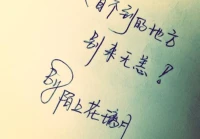 看不到的地方
别来无恙!
By 陌上花满月